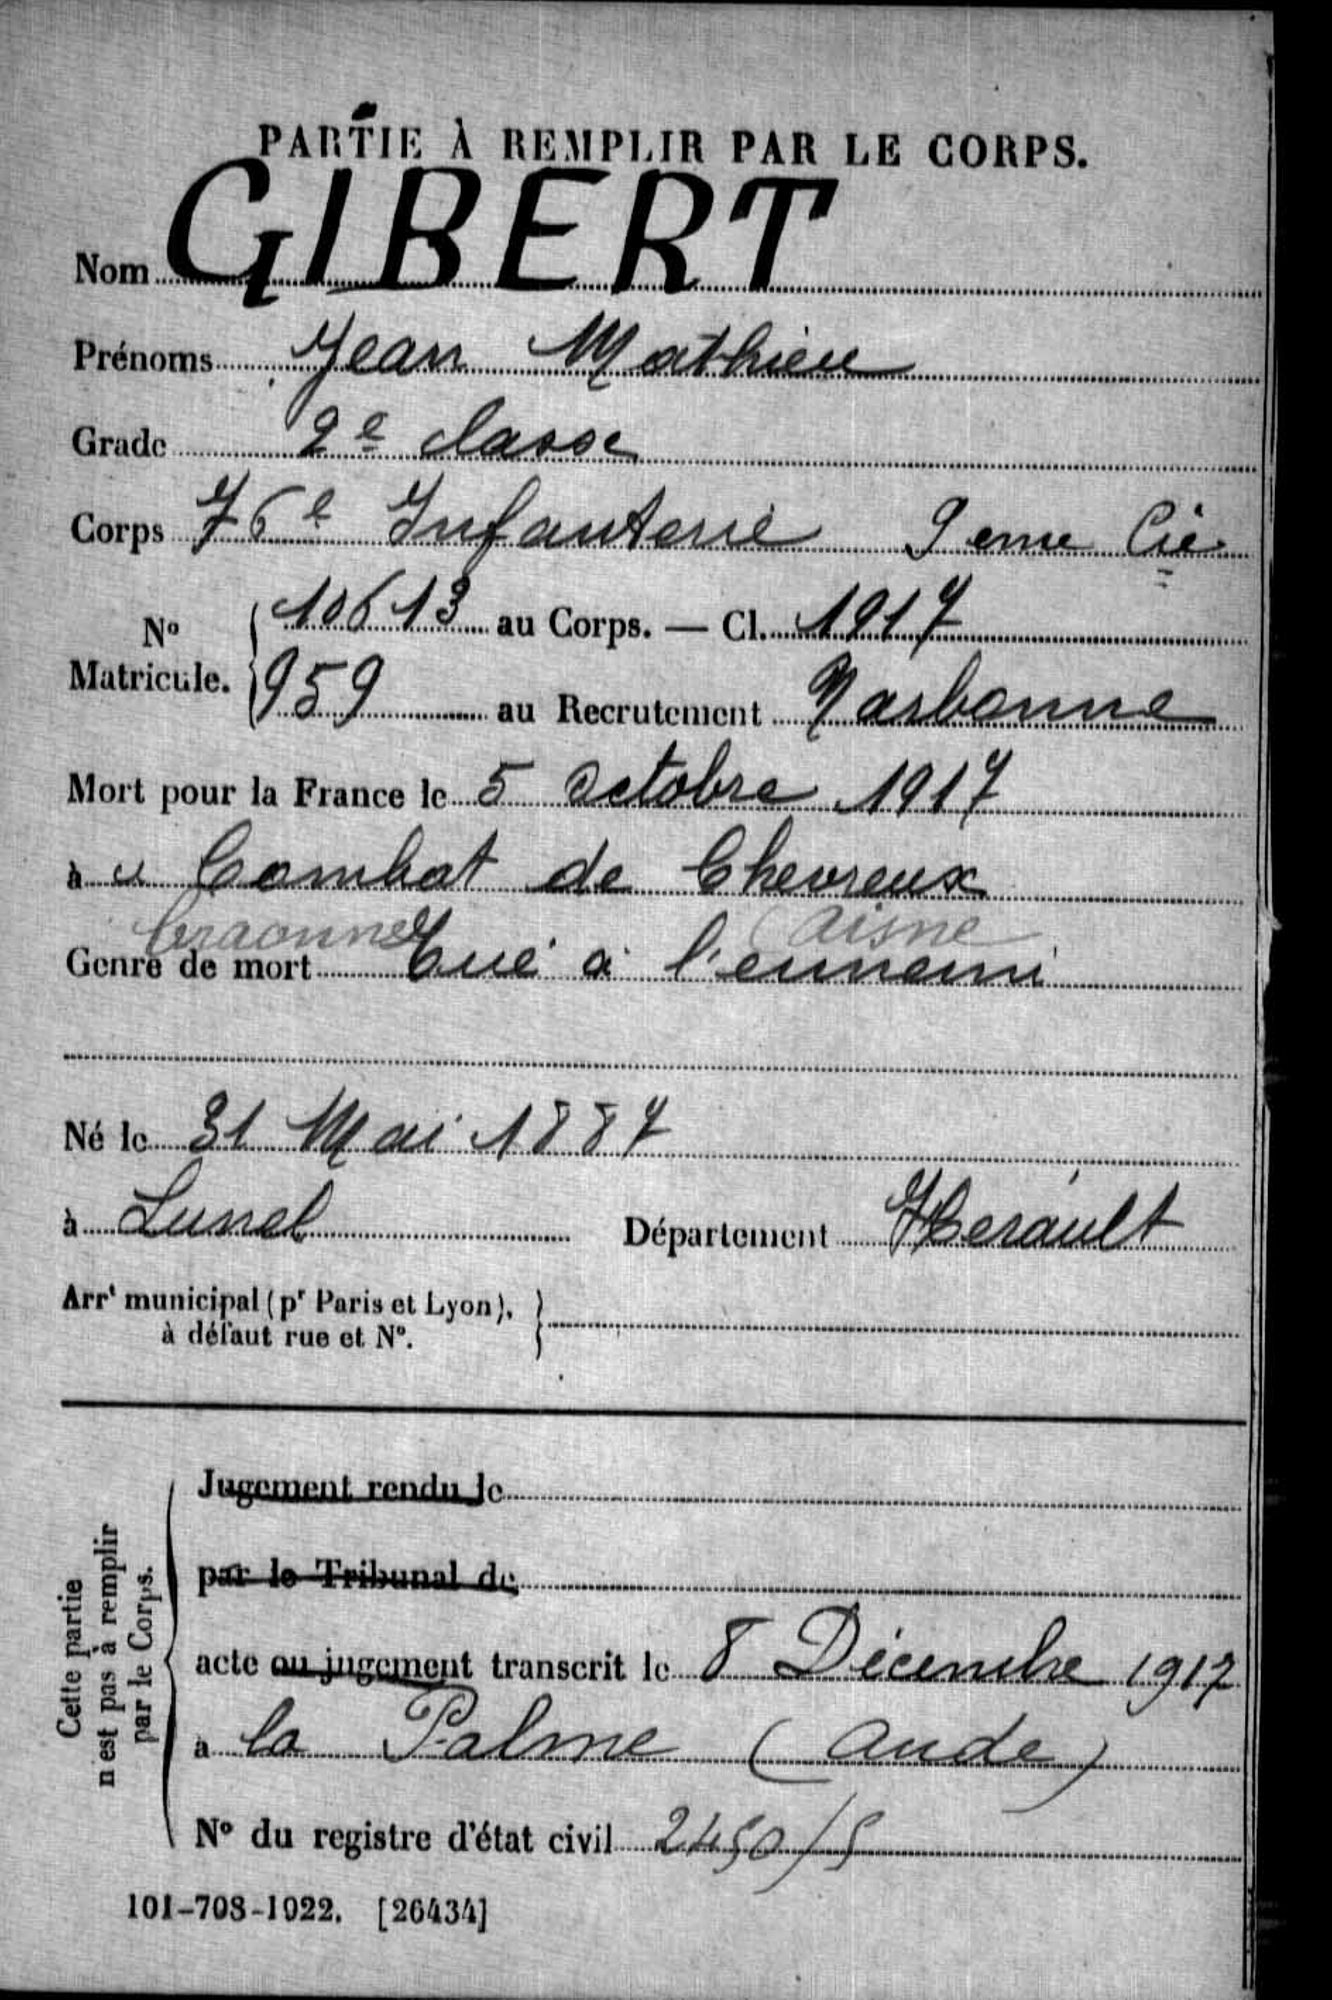 PARTIE À REMPLIR PAR LE CORPS.
Nom GIBERT
Prénoms Jean Mathieu
Grade 2e classe
Corps 76e Infanterie 9eme Cie
No Matricule. 10613 au Corps. — Cl. 1917
959 au Recrutement Narbonne
Mort pour la France le 5 Octobre 1917
à Combat de Chevreux
Craonne (Aisne
Genre de mort Tué à l'ennemi
Né le 31 Mai 1887
à Lunel Département Herault
Arrt municipal (pr Paris et Lyon),
à défaut rue et No.
Cette partie
n'est pas à remplir
par le Corps.
Jugement rendu le
par le Tribunal de
acte ou jugement transcrit le 8 Décembre 1917
a la Palme (Aude)
No du registre d'état civil 2450/5
101-708-1922. [26434]